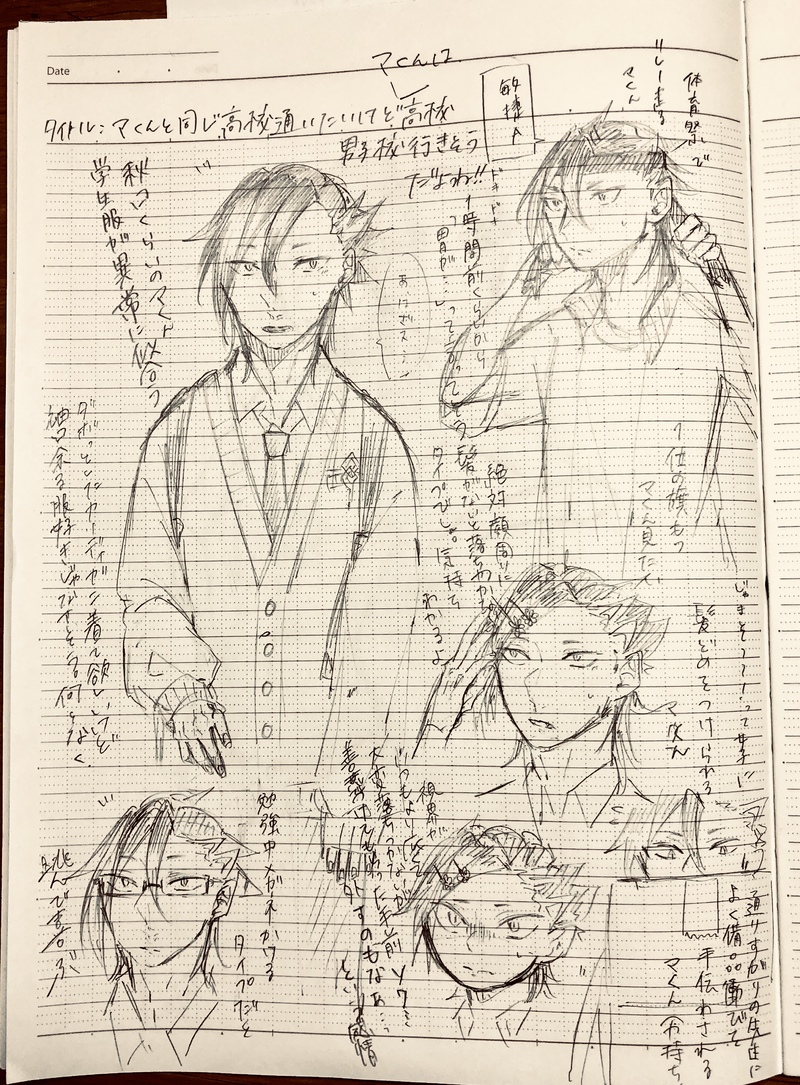 Date
マくんは
タイトル:マくんと同じ高校通いたいけど高校
男子校行きそう
だよね!!
敏捷A
体育祭で
マくん
秋口くらいのマくん
学生服が異常に似合う
ダボっとしたカーディガン着て欲しいけど
袖余る服好きじゃなさそう
ドキドキ
1時間前くらいから
「胃が…」って言ってそう
あざす…
1位の旗もつ
マくん見たい
絶対顔周りに
髪がないと落ちつかない
タイプでしょ。気持ち
わかるよ
じゃまそうー!って女子に
髪どめをつけられる
マくん
勉強中メガネかける
タイプだと
視界が
いつもよりよくて
大変落ちつかないが
善意でやってもらった手前
すのもなぁ…
という感情
通りすがりの先生に
よく備品運びを
手伝わされる
マくん